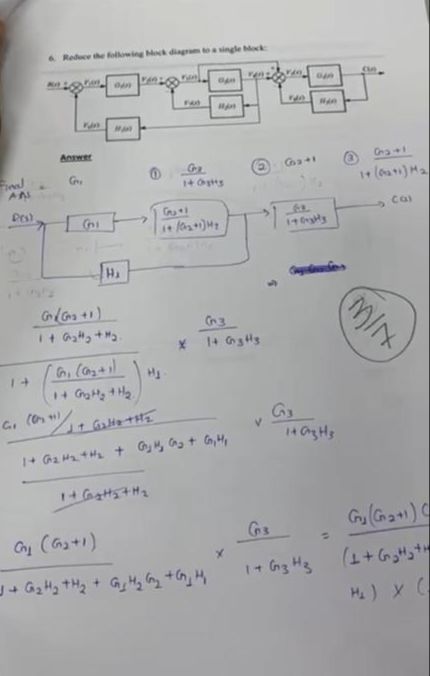 6. Reduce the following block diagram to a single block:
R(s) + V₁(s) G₁(s) V₂(s) + V₃(s) G₂(s) V₄(s) + V₅(s) G₃(s) C(s)
H₂(s) H₃(s)
H₁(s)
Answer
Final
G₁ ① G₃ / 1+G₃H₃ ② G₂+1 ③ G₂+1 / 1+(G₂+1)H₂
R(s) G₁ G₂+1 / 1+(G₂+1)H₂ G₃ / 1+G₃H₃ C(s)
H₁
⇒
G₁(G₂+1) / 1+G₂H₂+H₂ × G₃ / 1+G₃H₃
1 + (G₁(G₂+1) / 1+G₂H₂+H₂) H₁
G₁(G₂+1) / 1+G₂H₂+H₂ × G₃ / 1+G₃H₃
1+G₂H₂+H₂ + G₁H₁G₂ + G₁H₁
1+G₂H₂+H₂
G₁(G₂+1) / 1+G₂H₂+H₂ + G₁H₂G₂ + G₁H₁ × G₃ / 1+G₃H₃ = G₁(G₂+1) / (1+G₂H₂+H
H₁) × (